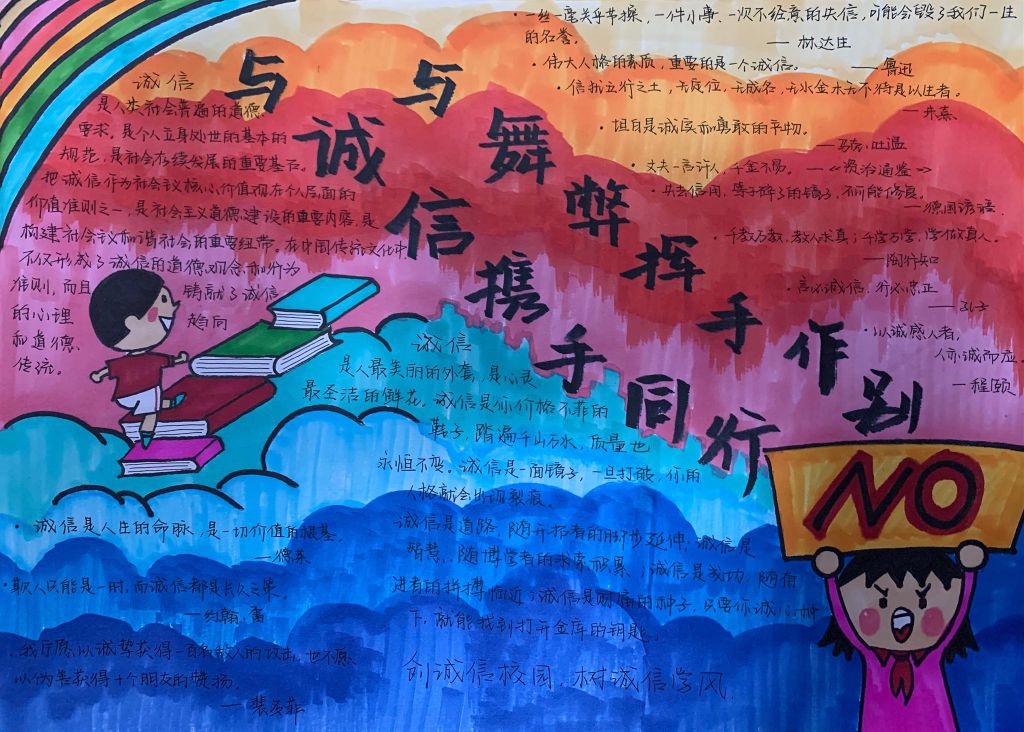 与诚信携手同行
与舞弊挥手作别
诚信
是人类社会普遍的道德
要求，是个人立身处世的基本的
规范，是社会存续发展的重要基石。
把诚信作为社会主义核心价值观在个人层面的
价值准则之一，是社会主义道德建设的重要内容，是
构建社会主义和谐社会的重要纽带。在中国传统文化中
不仅形成了诚信的道德观念和行为
准则，而且 铸就了诚信
的心理 趋向
和道德
传统。
·一丝一毫关乎节操，一件小事、一次不经意的失信，可能会毁了我们一生
的名誉。
— 林达生
·伟大人格的素质，重要的是一个诚信。
— 鲁迅
·信犹五行之土，无定位，无成名，无水金木无不待是以生者。
— 朱熹
·坦白是诚实和勇敢的产物。
— 马克·吐温
·丈夫一言许人，千金不易。—《资治通鉴》
·失去信用，等于碎了的镜子，不可能修复。
— 德国谚语
·千教万教，教人求真；千学万学，学做真人。
— 陶行知
·言必诚信，行必忠正
— 孔子
·以诚感人者，
人亦诚而应。
— 程颐
NO
诚信
是人最美丽的外套，是心灵
最圣洁的鲜花。诚信是你价格不菲的
鞋子，踏遍千山万水，质量也
永恒不变。诚信是一面镜子，一旦打破，你的
人格就会出现裂痕。
诚信是道路，随开拓者的脚步延伸；诚信是
智慧，随博学者的求索积累；诚信是成功，随奋
进者的拼搏临近；诚信是财富的种子，只要你诚心种
下，就能找到打开金库的钥匙。
创诚信校园，树诚信学风
·诚信是人生的命脉，是一切价值的根基。
— 德莱
·欺人只能是一时，而诚信都是长久之策。
— 约翰·雷
·我宁愿以诚挚获得一百名敌人的攻击，也不愿
以伪善获得十个朋友的赞扬。
— 裴多菲